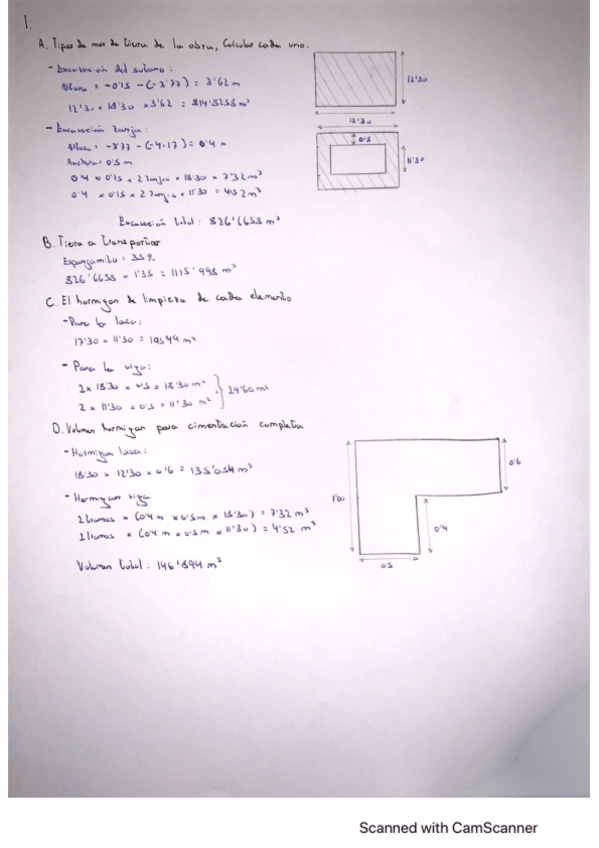 1.
A. Tipos de mov de tierra de la obra, Calcular cada uno.
- Excavación del sótano:
Altura = -0'15 - (-3'77) = 3'62 m
12'30 × 18'30 × 3'62 = 814'8258 m³
12'30
18'30
- Excavación zanja:
Altura = -3'77 - (-4'17) = 0'4 m
Anchura = 0'5 m
0'4 × 0'5 × 2 zanjas × 18'30 = 7'32 m³
0'4 × 0'5 × 2 zanjas × 11'30 = 4'52 m³
0'5
11'30
Excavación total: 826'6658 m³
B. Tierra a transportar
Esponjamiento = 35%
826'6658 × 1'35 = 1115'998 m³
C. El hormigon de limpieza de cada elemento
- Para la losa:
17'30 × 11'30 = 195'49 m²
- Para la viga:
2 × 18'30 × 0'5 = 18'30 m²
2 × 11'30 × 0'5 = 11'30 m²
29'60 m²
D. Volumen hormigon para cimentación completa
- Hormigon losa:
18'30 × 12'30 × 0'6 = 135'054 m³
- Hormigon viga
2 tramos × (0'4 m × 0'5 m × 18'30) = 7'32 m³
2 tramos × (0'4 m × 0'5 m × 11'30) = 4'52 m³
Volumen total: 146'894 m³
0'6
1'00
0'4
0'5
Scanned with CamScanner